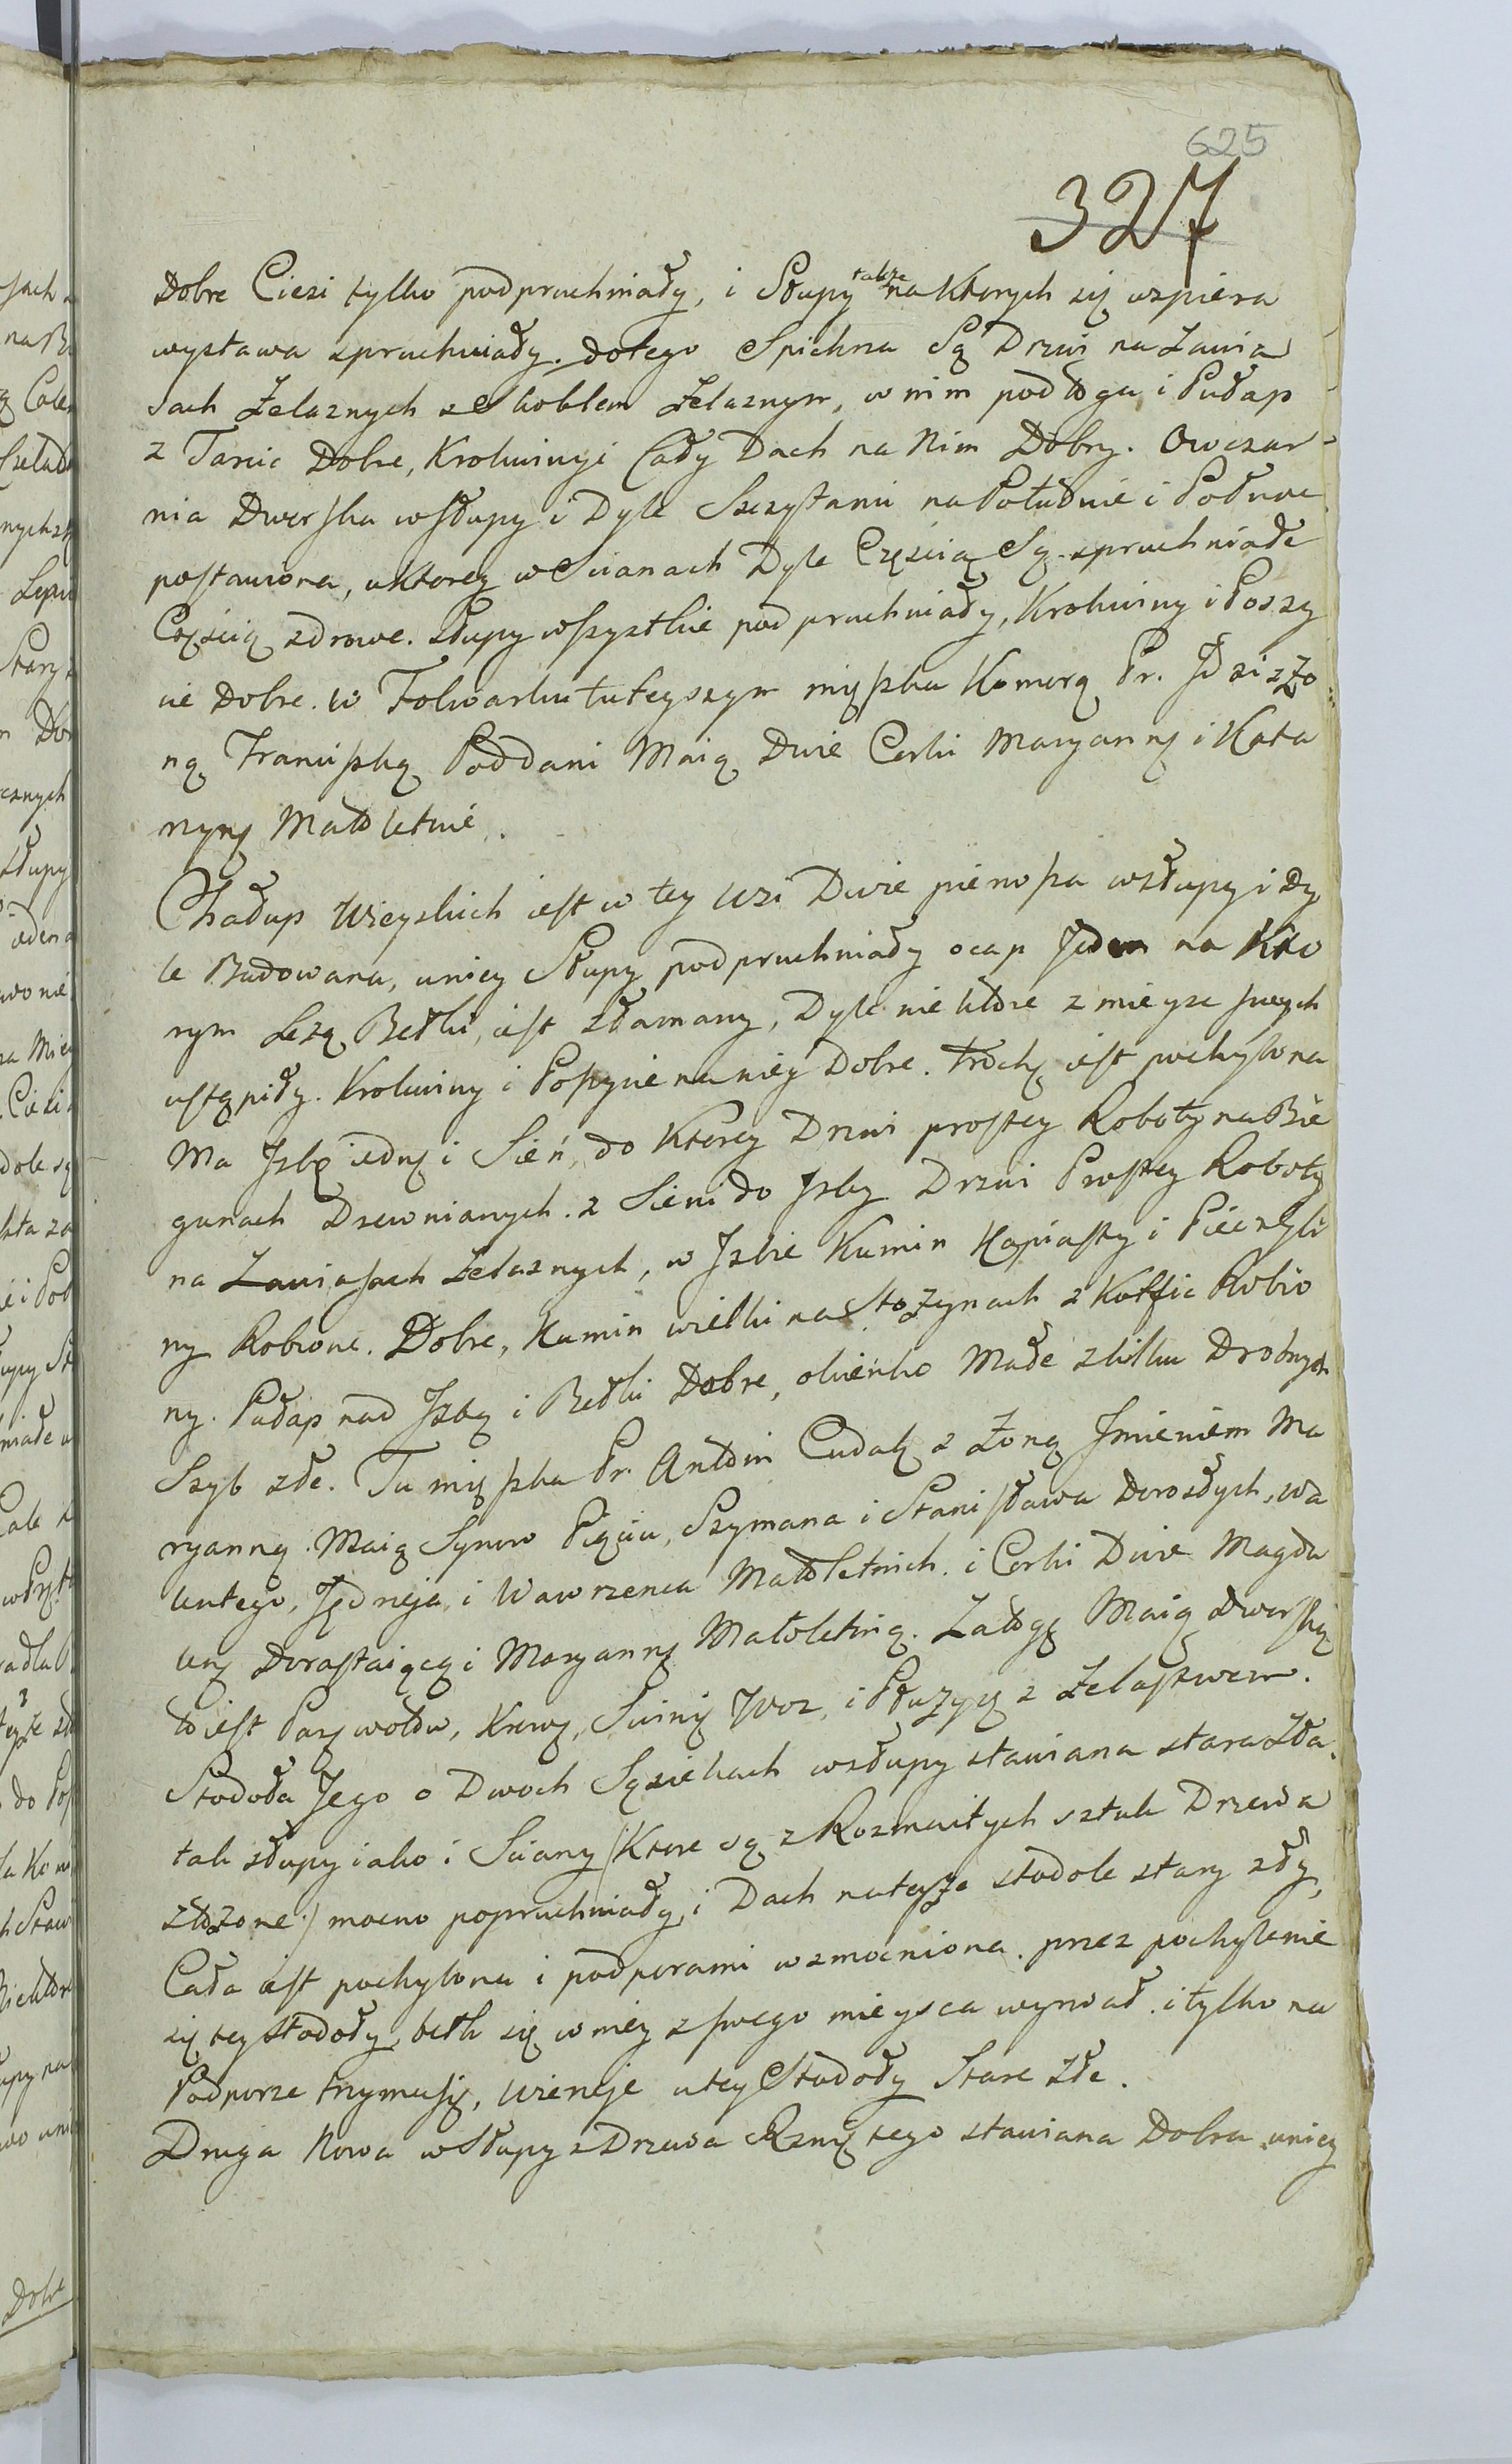 625
327
Dobre Ciesi tylko podpruchniały, i Słupy także na Ktorych się wspiera
wystawa spruchniały. dotego Spichrza Są Drzwi na Zawia
sach Zelaznych z Skoblem Zelaznym, w nim podłoga i Pułap
z Tarcic Dobre, Krokwiny i Cały Dach na Nim Dobry. Owczar-
nia Dworska w Słupy i Dyle Szczytami na Południe i Połnoc
postawiona, u Ktorey w Scianach Dyle Częścią Są spruchniałe
Częścią zdrowe. Słupy wszystkie podpruchniały, Krokwiny i Poszy
cie Dobre. w Folwarku tuteyszym mięszka Komorą Pr. Jdzi z Żo
ną Franciszką Poddani Maią Dwie Corki Maryannę i Kata
rzynę Małoletnie.
Chałup Wieyskich iest w tey Wsi Dwie pierwsza w słupy i Dy
le Budowana, u niey Słupy podpruchniały ocap Jeden na Kto
rym Leżą Belki, iest złamany, Dyle niektore z mieysc swych
ustąpiły. Krokwiny i Poszycie na niey Dobre. Trochę iest pochylona
Ma Jzbę iednę i Sień, do Ktorey Drzwi prostey Roboty na Bie
gunach Drewnianych. z Sieni do Jzby Drzwi Prostey Roboty
na Zawiasach Zelaznych, w Jzbie Kumin Kapiasty i Piec z Gli
ny Robione. Dobre, Kumin wielki na Stożynach z Kołfic Robio
ny. Pułap nad Jzbą i Belki Dobre, okienko Małe z kilku Drobnych
Szyb złe. Tu mięszka Pr. Antoni Cudak z Zoną Jmieniem Ma
ryanną. Maią Synow Pięciu, Szymona i Stanisława Dorosłych, Wa
lentego, Jędrzeja, i Wawrzenca Małoletnich. i Corki Dwie Magda
lenę Dorastaiącą i Maryannę Małoletnią. Załogę Maią Dworską
to iest Parę wołow, Krowę, Swinię Woz, i Płużycę z Zelastwem.
Stodoła Jego o Dwoch Sąsiekach w słupy stawiana stara Zła.
tak słupy iako i Sciany /: Ktore są z Rozmaitych sztuk Drzewa
złożone :/ mocno popruchniały, i Dach na teyże stodole stary zły,
Cała iest pochylona i podporami wzmocniona. przez pochylenie
się tey Stodoły, belk się w niey z swego mieysca wyrwał. i tylko na
Podporze trzyma się, wierzeje u tey Stodoły Stare Złe.
Druga Nowa w Słupy z Drzewa Rzniętego stawiana Dobra u niey